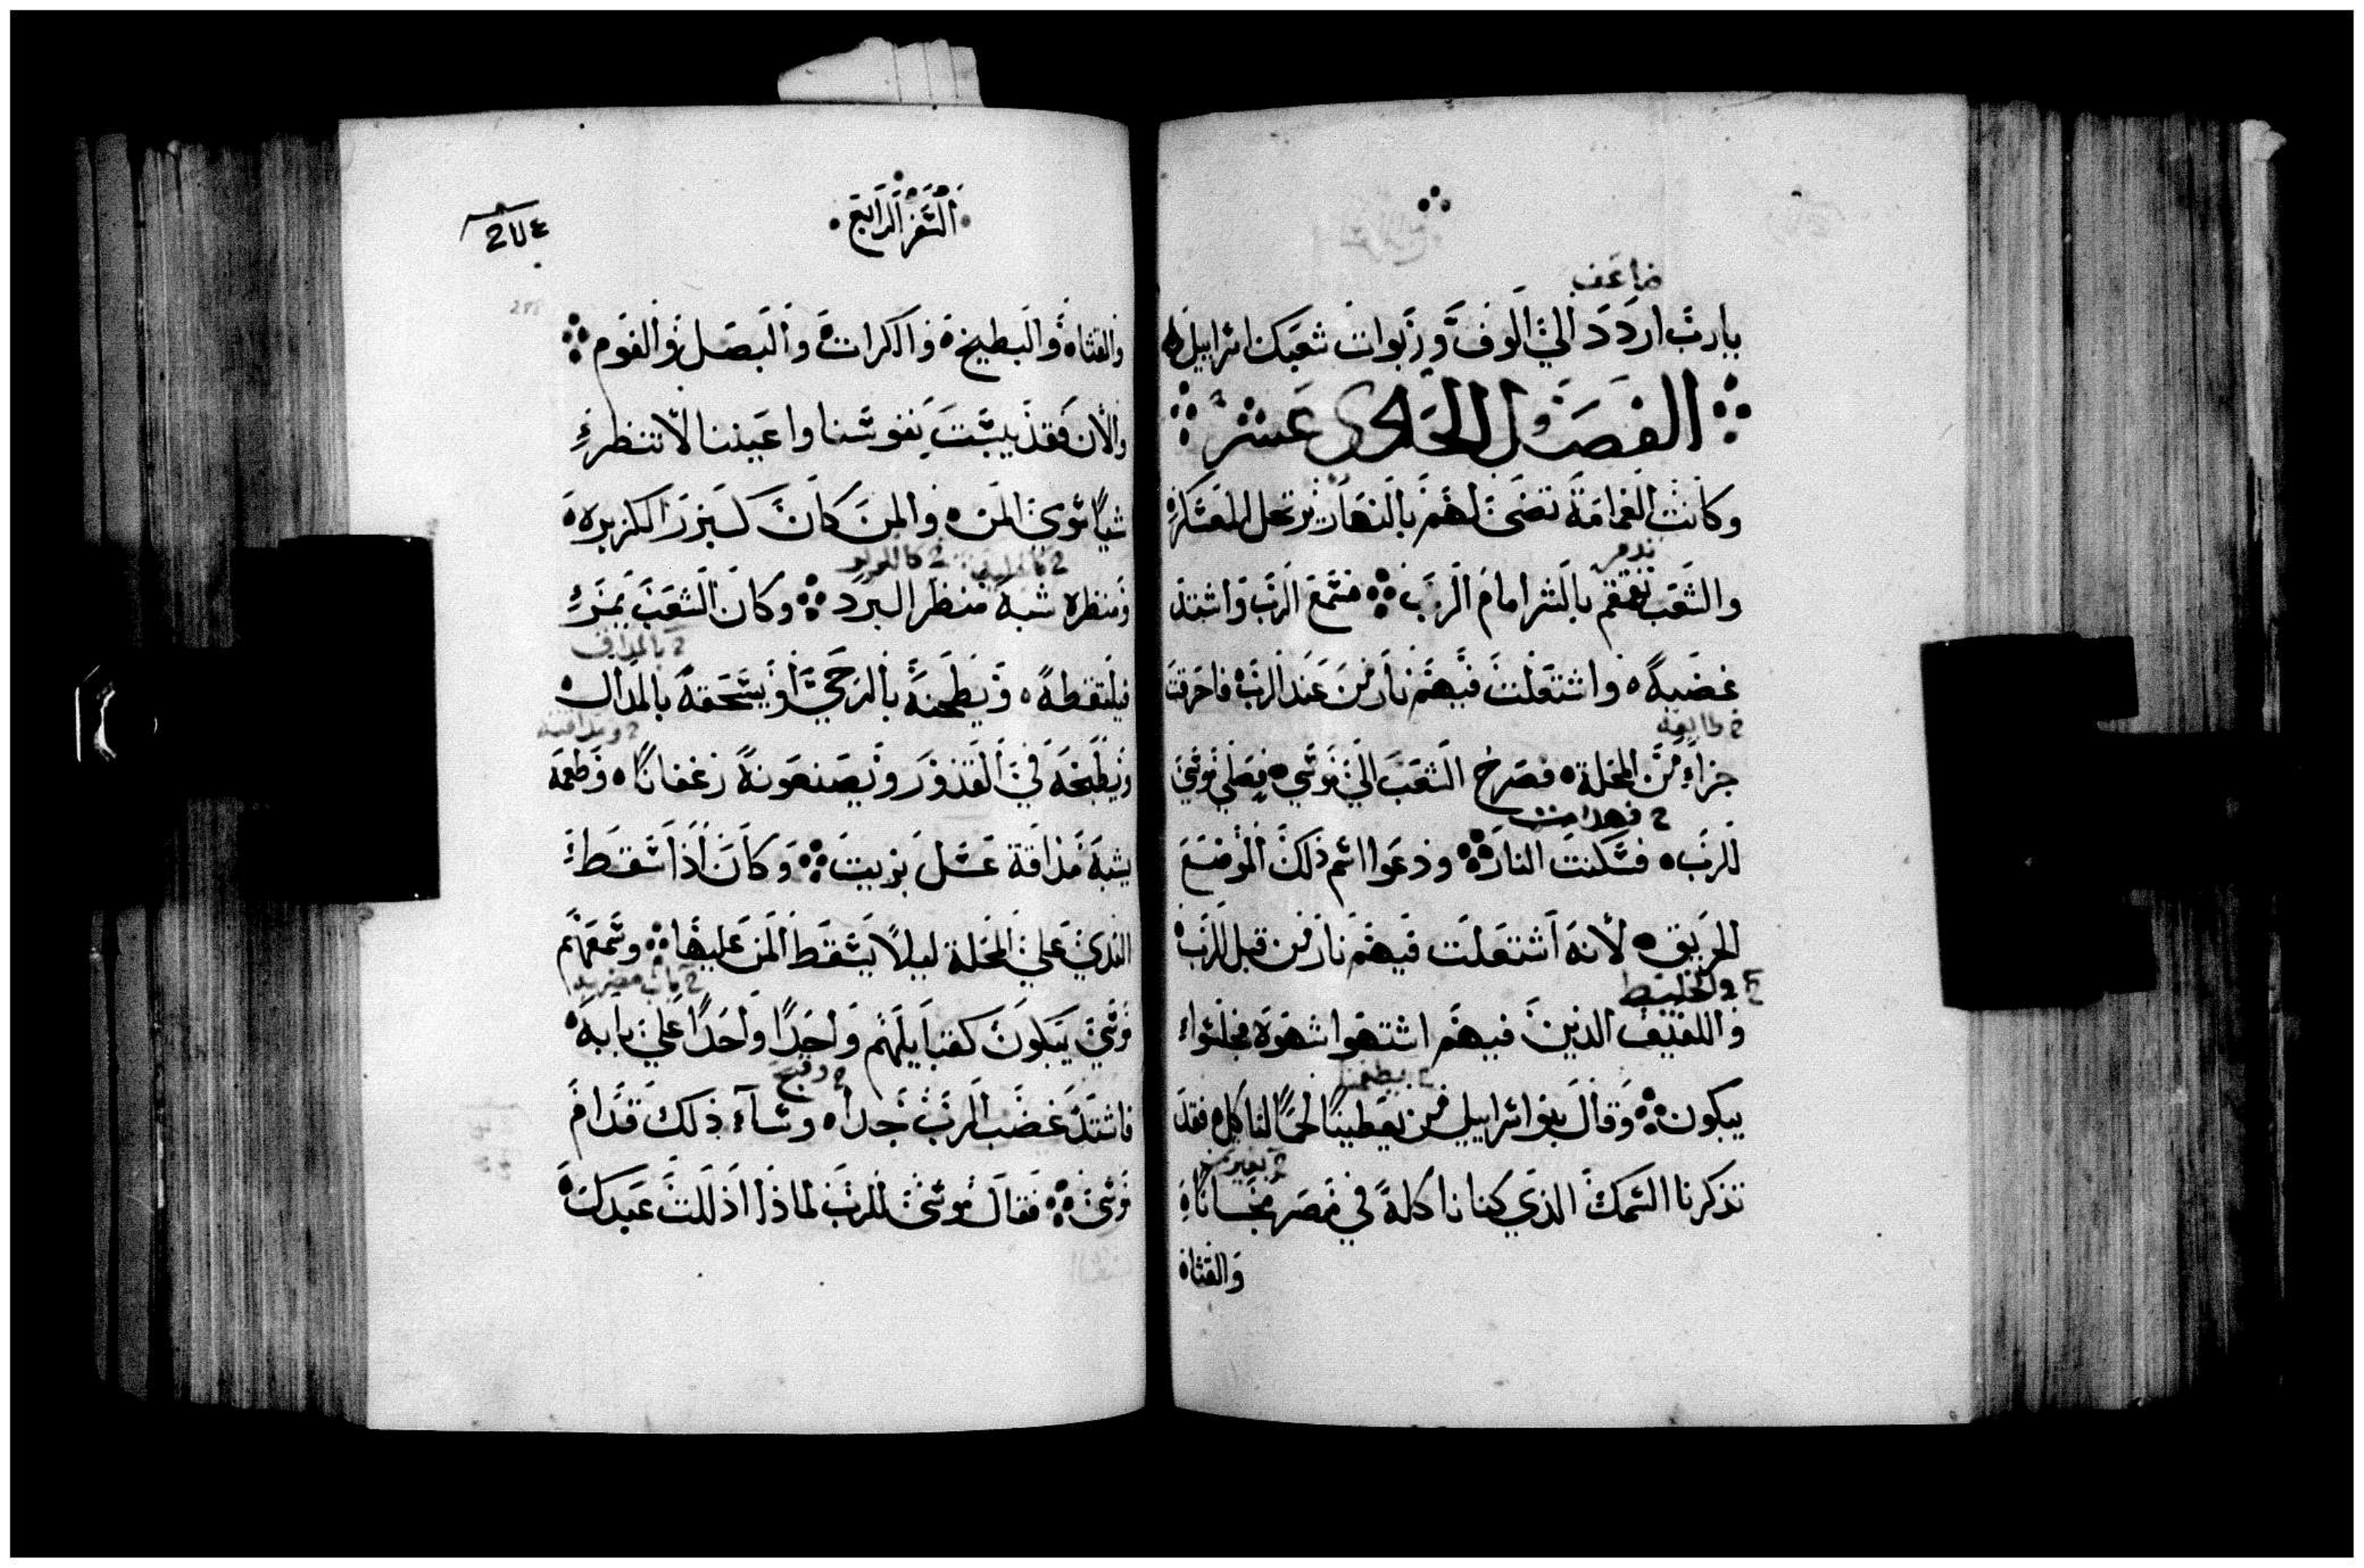 ضاعف
يارب اردد الي الوف وربوات شعبك اسراييل
الفصل الحادى عشر
وكانت الغمامة تضى لهم بالنهار
والشعب تقمقم بالشر امام الرب فسمع الرب واشتد
غضبه واشتعلت فيهم نار من عند الرب فاحرقت
2 طايفة
جزاء من المحلة فصرخ الشعب الي موسي فصلي موسي
2 فهدات
للرب فسكنت النار ودعوا اسم ذلك الموضع
الحريق لأنه اشتعلت فيهم نار من قبل الرب
والخليط
واللفيف الذين فيهم اشتهوا شهوة فجلسوا
يبكون وقال بنو اسراييل من يعطينا لحمًا لناكل فقد
تذكرنا السمك الذي كنا ناكله في مصر مجانًا
والقثاة
السفر الرابع
والقثاة والبطيخة والكراث والبصل والفوم
والأن فقد يبست نفوسنا واعيننا لا تنظر
شيًا سوى المن والمن كان كبزر الكزبره
ومنظره شبه منظر البرد وكان الشعب يمر
فيلتقطه ويطحنه بالرحي او يسحقه بالمداك
ويطبخه في القدور ويصنعونه رغفانًا وطعمه
يشبه مذاقة عسل بزيت وكان اذا سقط
الندي علي المحلة ليلًا يسقط المن عليها وسمعهم
موسي يبكون كقبايلهم واحدًا واحدًا علي بابه
فاشتد غضب الرب جدا وسآء ذلك قدام
موسي فقال موسي للرب لماذا اذللت عبدك